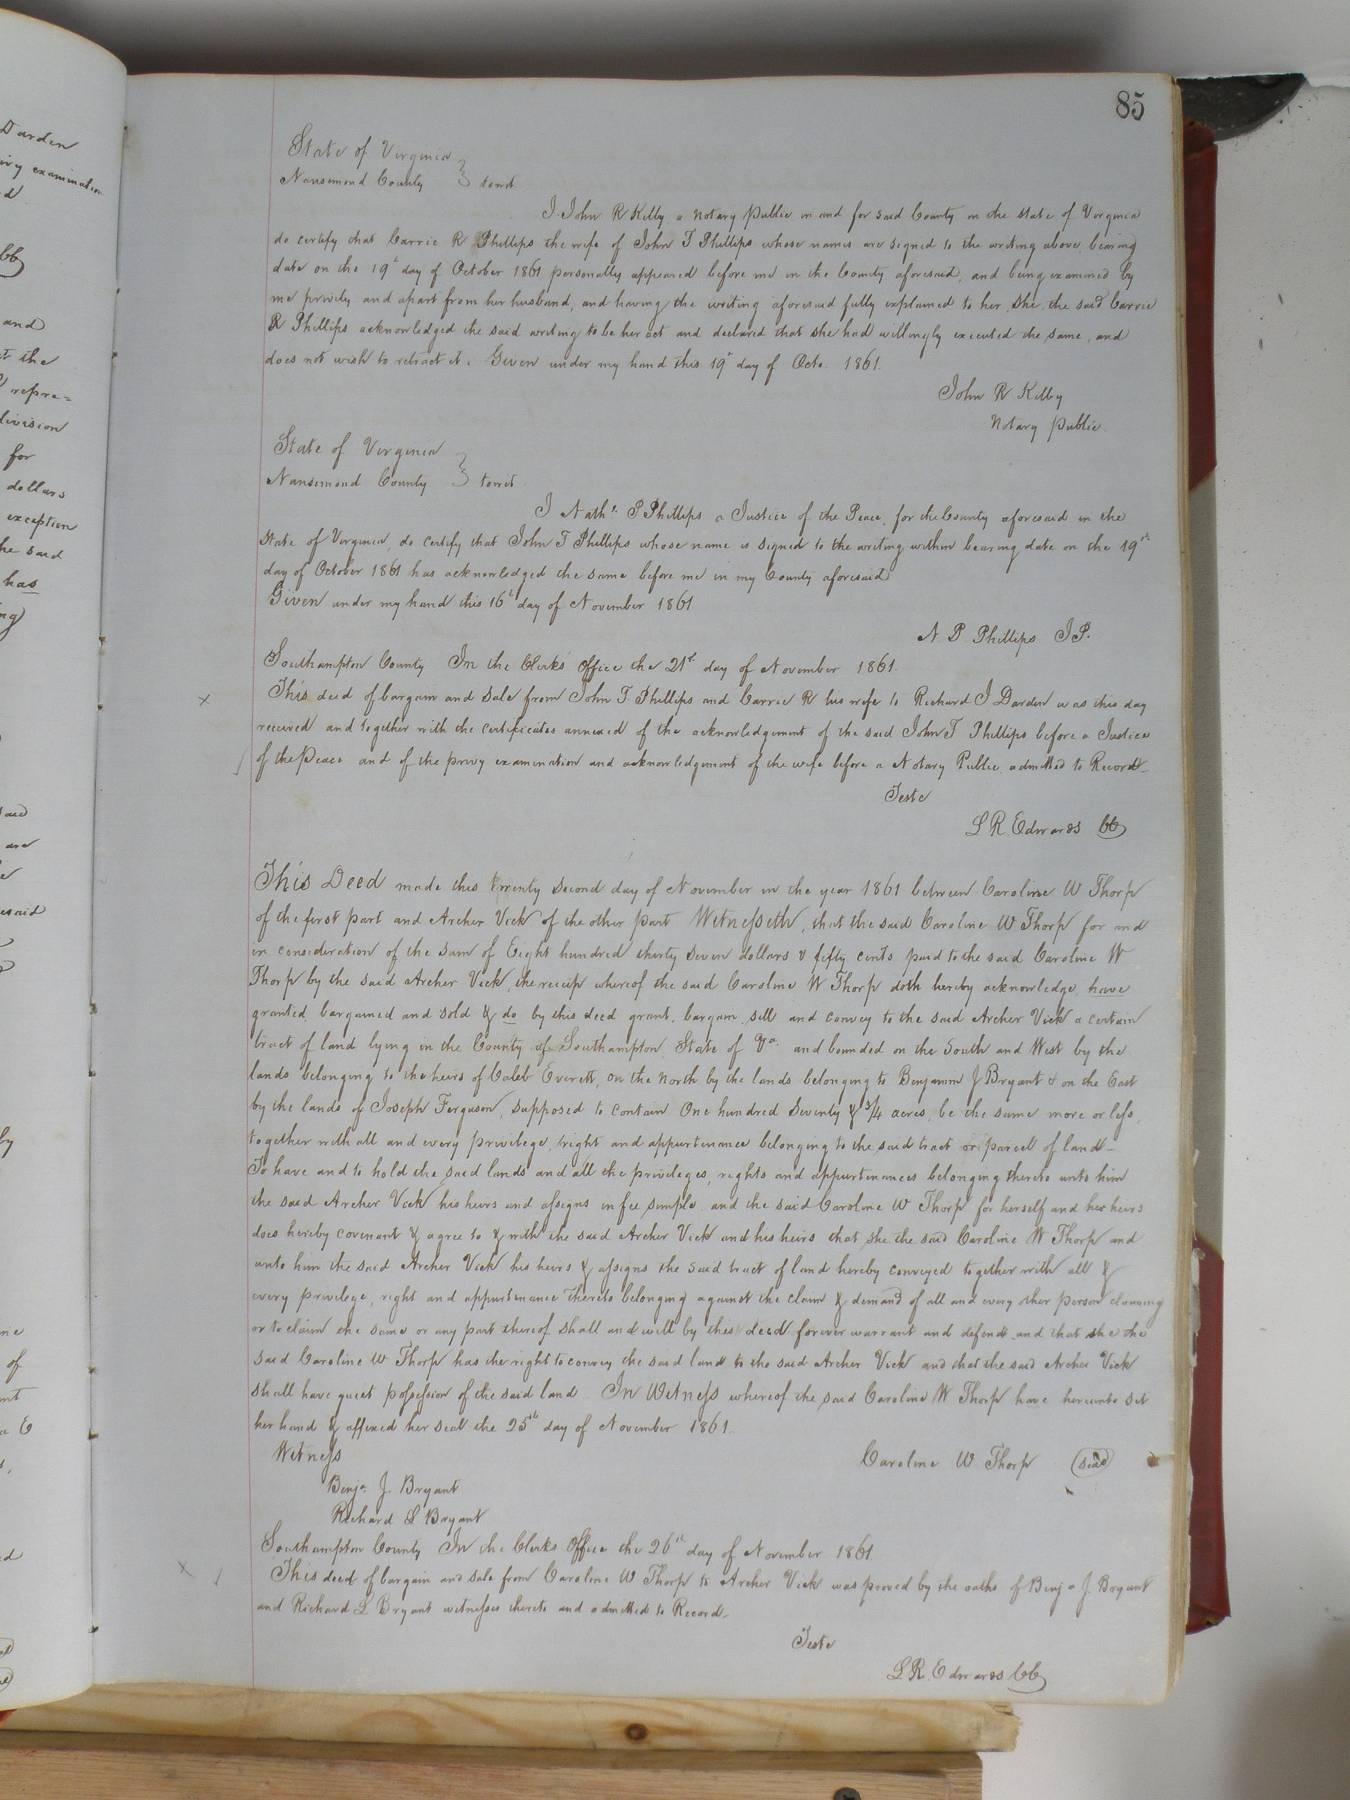 85
State of Virginia
Nansemond County } towit
I John R Kilby a Notary Public in and for said County in the State of Virginia
do certify that Carrie R Phillips the wife of John T Phillips whose names are signed to the writing above bearing
date on the 19th day of October 1861 personally appeared before me in the County aforesaid, and being examined by
me privily and apart from her husband, and having the writing aforesaid fully explained to her, she the said Carrie
R Phillips acknowledged the said writing to be her act and declared that she had willingly executed the same, and
does not wish to retract it. Given under my hand this 19th day of Octo. 1861.
John R Kilby
Notary Public
State of Virginia
Nansemond County } towit
I Nathl. P Phillips a Justice of the Peace, for the County aforesaid in the
State of Virginia, do certify that John T Phillips whose name is signed to the writing within bearing date on the 19th
day of October 1861 has acknowledged the same before me in my County aforesaid
Given under my hand this 16th day of November 1861
N P Phillips J P.
Southampton County In the Clerks Office the 21st day of November 1861.
This deed of bargain and sale from John T Phillips and Carrie R his wife to Richard J Darden was this day
received and together with the certificates annexed of the acknowledgement of the said John T Phillips before a Justice
of the Peace and of the privy examination and acknowledgement of the wife before a Notary Public admitted to Record
Teste
L R Edwards CC
This Deed made this twenty second day of November in the year 1861 between Caroline W Thorp
of the first part and Archer Vick of the other part Witnesseth, that the said Caroline W Thorp for and
in consideration of the sum of Eight hundred thirty seven dollars & fifty cents paid to the said Caroline W
Thorp by the said Archer Vick, the receip whereof the said Caroline W Thorp doth hereby acknowledge, have
granted bargained and sold & do by this deed grant, bargain sell and convey to the said Archer Vick a certain
tract of land lying in the County of Southampton State of Va. and bounded on the South and West by the
lands belonging to the heirs of Caleb Everett, on the North by the lands belonging to Benjamin J Bryant & on the East
by the lands of Joseph Ferguson, supposed to contain One hundred Seventy & 3/4 acres, be the same more or less,
together with all and every privilege, right and appurtenance belonging to the said tract or parcel of land
To have and to hold the said lands and all the privileges, rights and appurtenances belonging thereto unto him
the said Archer Vick his heirs and assigns in fee simple and the said Caroline W Thorp for herself and her heirs
does hereby covenant & agree to & with the said Archer Vick and his heirs that she the said Caroline W Thorp and
unto him the said Archer Vick his heirs & assigns the said tract of land hereby conveyed together with all &
every privilege, right and appurtenance thereto belonging against the claim & demand of all and every other person claiming
or to claim the same or any part thereof shall and will by this deed forever warrant and defend and that she the
said Caroline W Thorp has the right to convey the said land to the said Archer Vick and that the said Archer Vick
shall have quiet possession of the said land In Witness whereof the said Caroline W Thorp have hereunto set
her hand & affixed her seal the 25th day of November 1861.
Witness Caroline W Thorp seal
Benja. J. Bryant
Richard L Bryant
Southampton County In the Clerks Office the 26th day of November 1861
This deed of bargain and sale from Caroline W Thorp to Archer Vick was proved by the oaths of Benja J. Bryant
and Richard L Bryant witnesses thereto and admitted to Record.
Teste
L R. Edwards CC